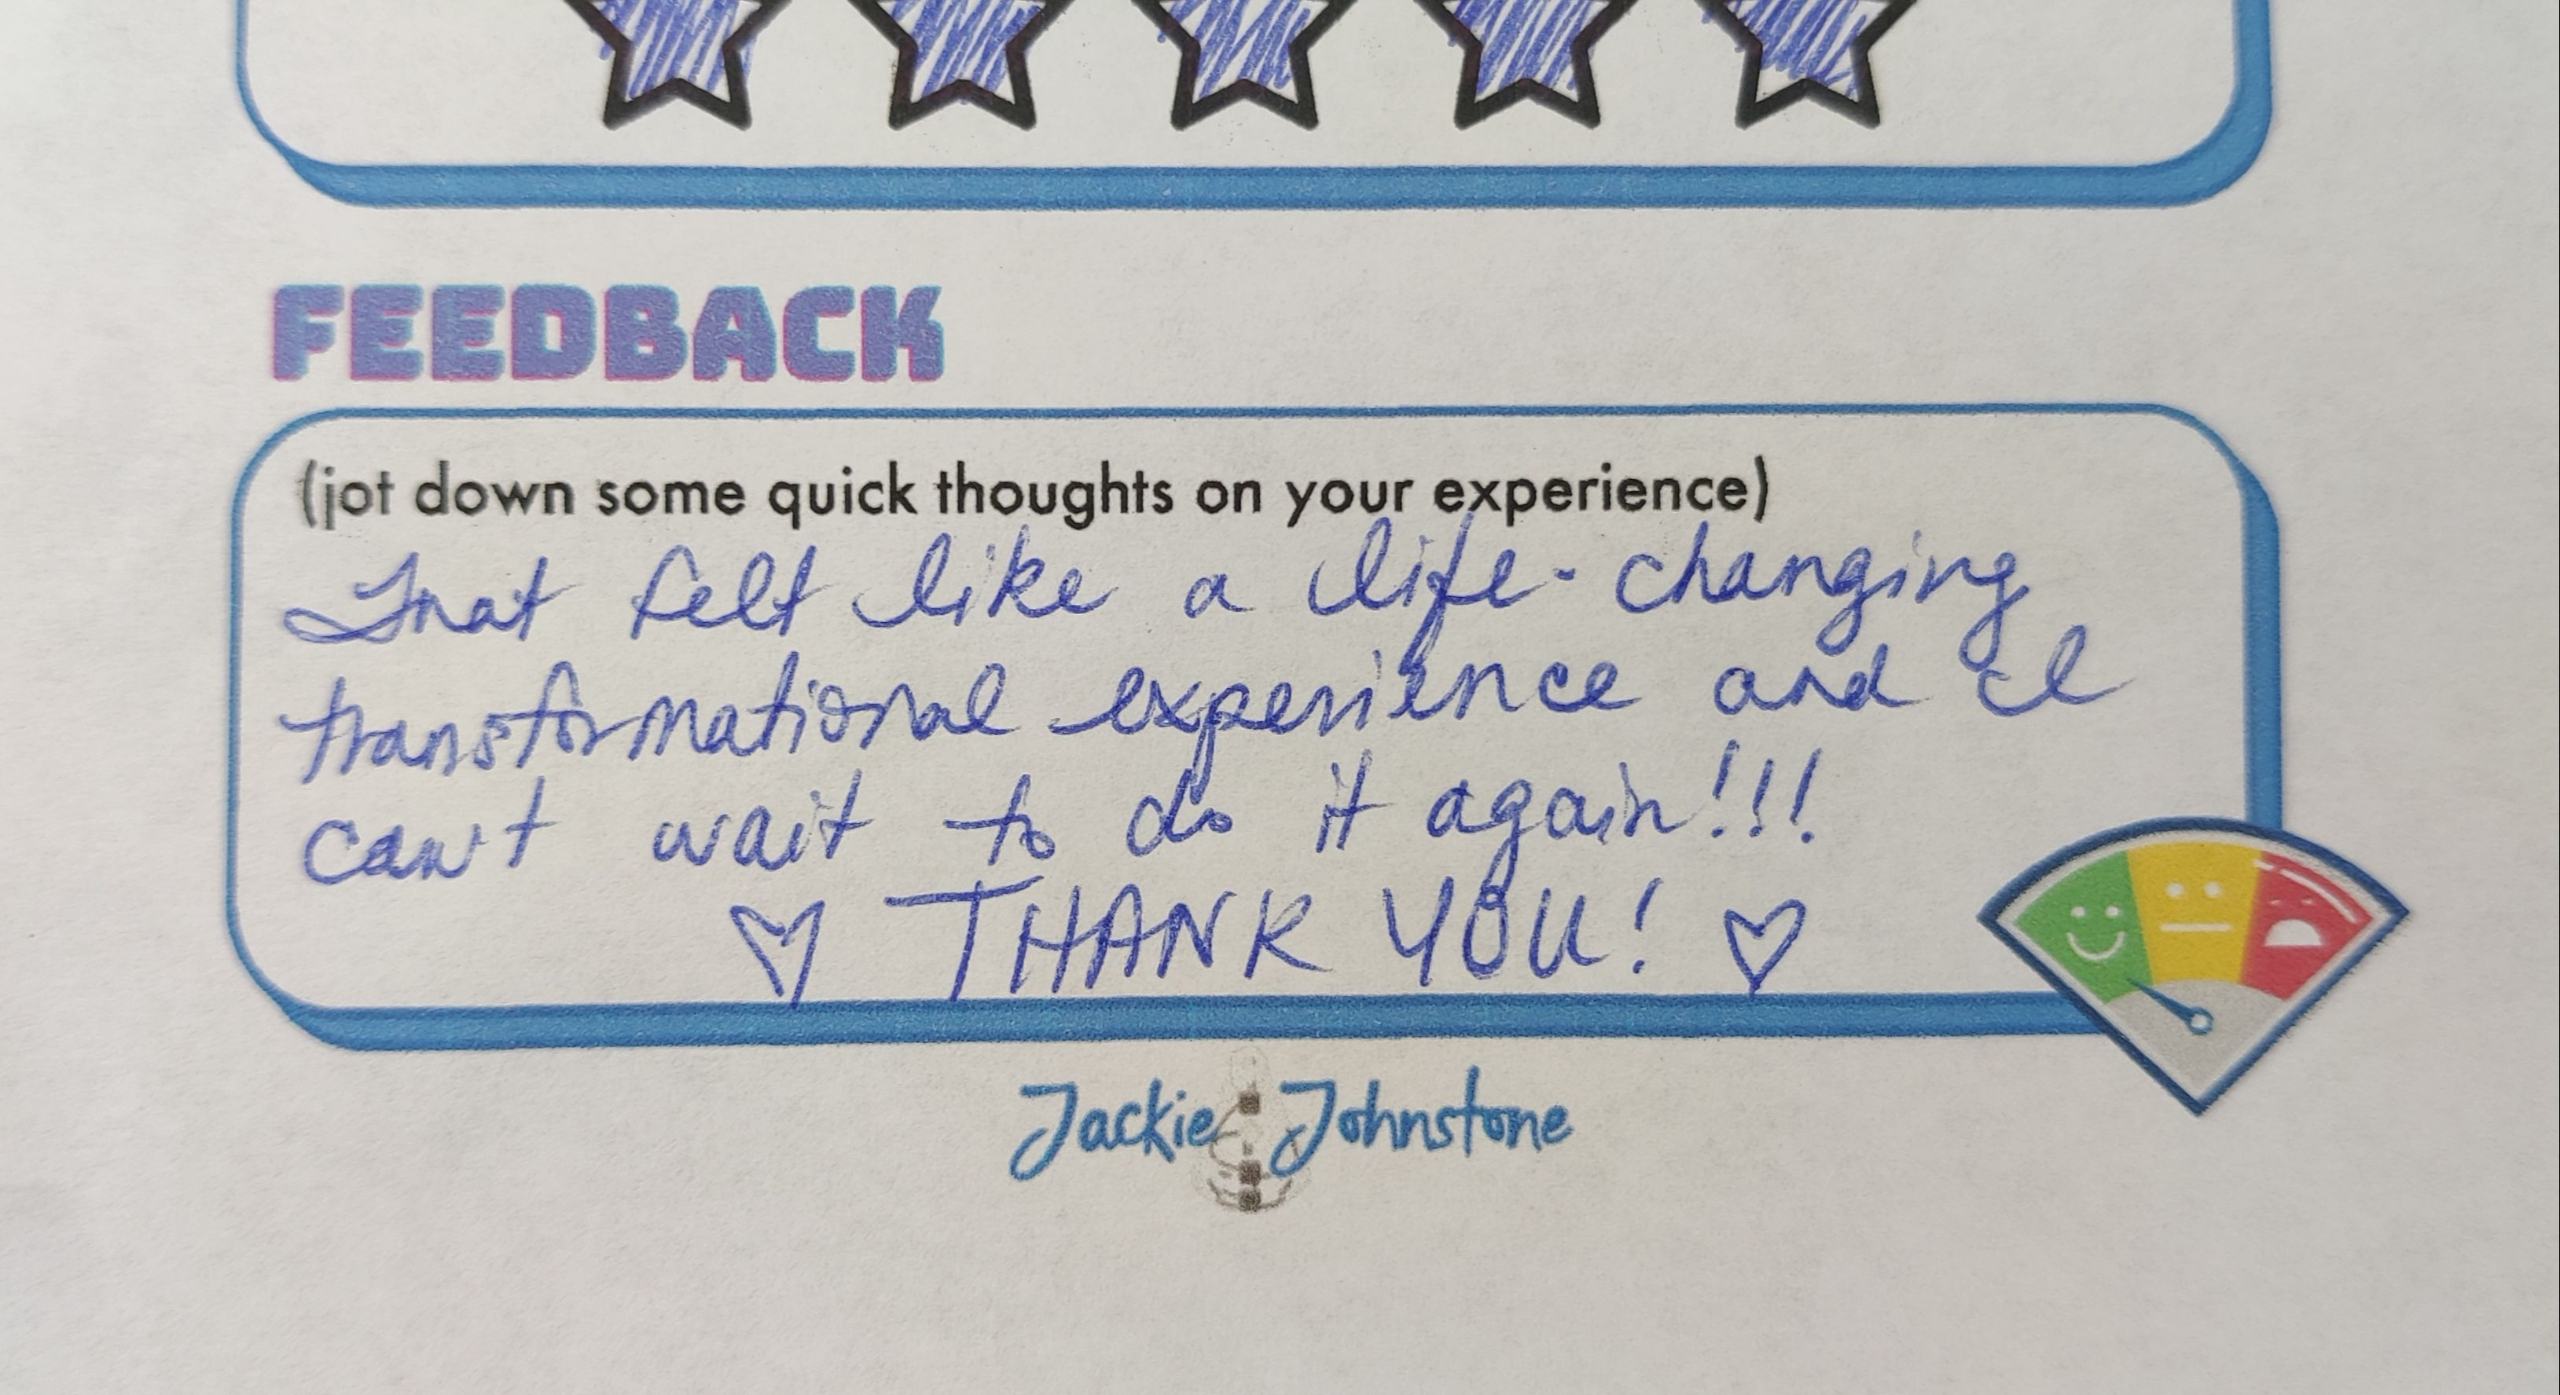 FEEDBACK
(jot down some quick thoughts on your experience)
That felt like a life-changing
transformational experience and I
can't wait to do it again!!!
♡ THANK YOU! ♡
Jackie Johnstone